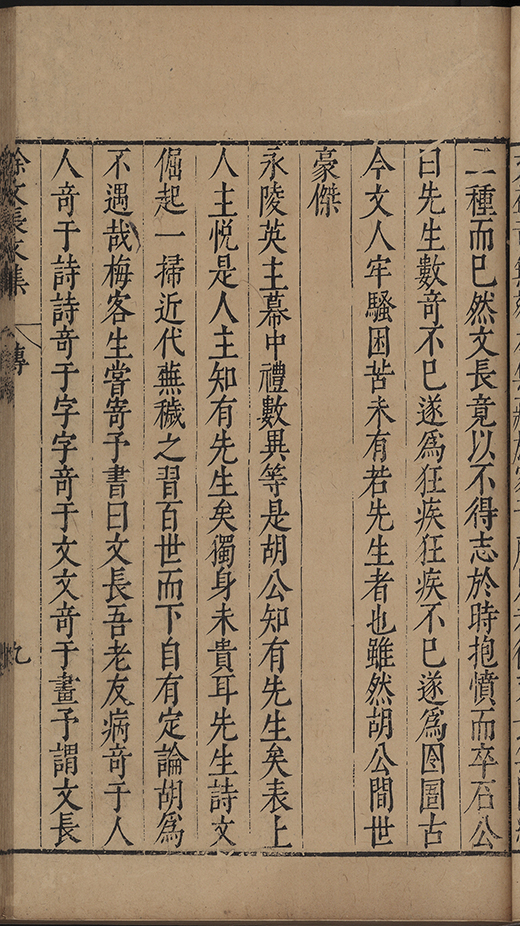 二種而已然文長竟以不得志於時抱憤而卒石公
曰先生數竒不已遂爲狂疾狂疾不已遂爲囹圄古
今文人牢騷困苦未有若先生者也雖然胡公間世
豪傑
永陵英主幕中禮數異等是胡公知有先生矣表上
人主悅是人主知有先生矣獨身未貴耳先生詩文
倔起一掃近代蕪穢之習百世而下自有定論胡爲
不遇哉梅客生嘗寄予書曰文長吾老友病竒于人
人竒于詩詩竒于字字竒于文文竒于畫予謂文長
徐文長文集 傳 九